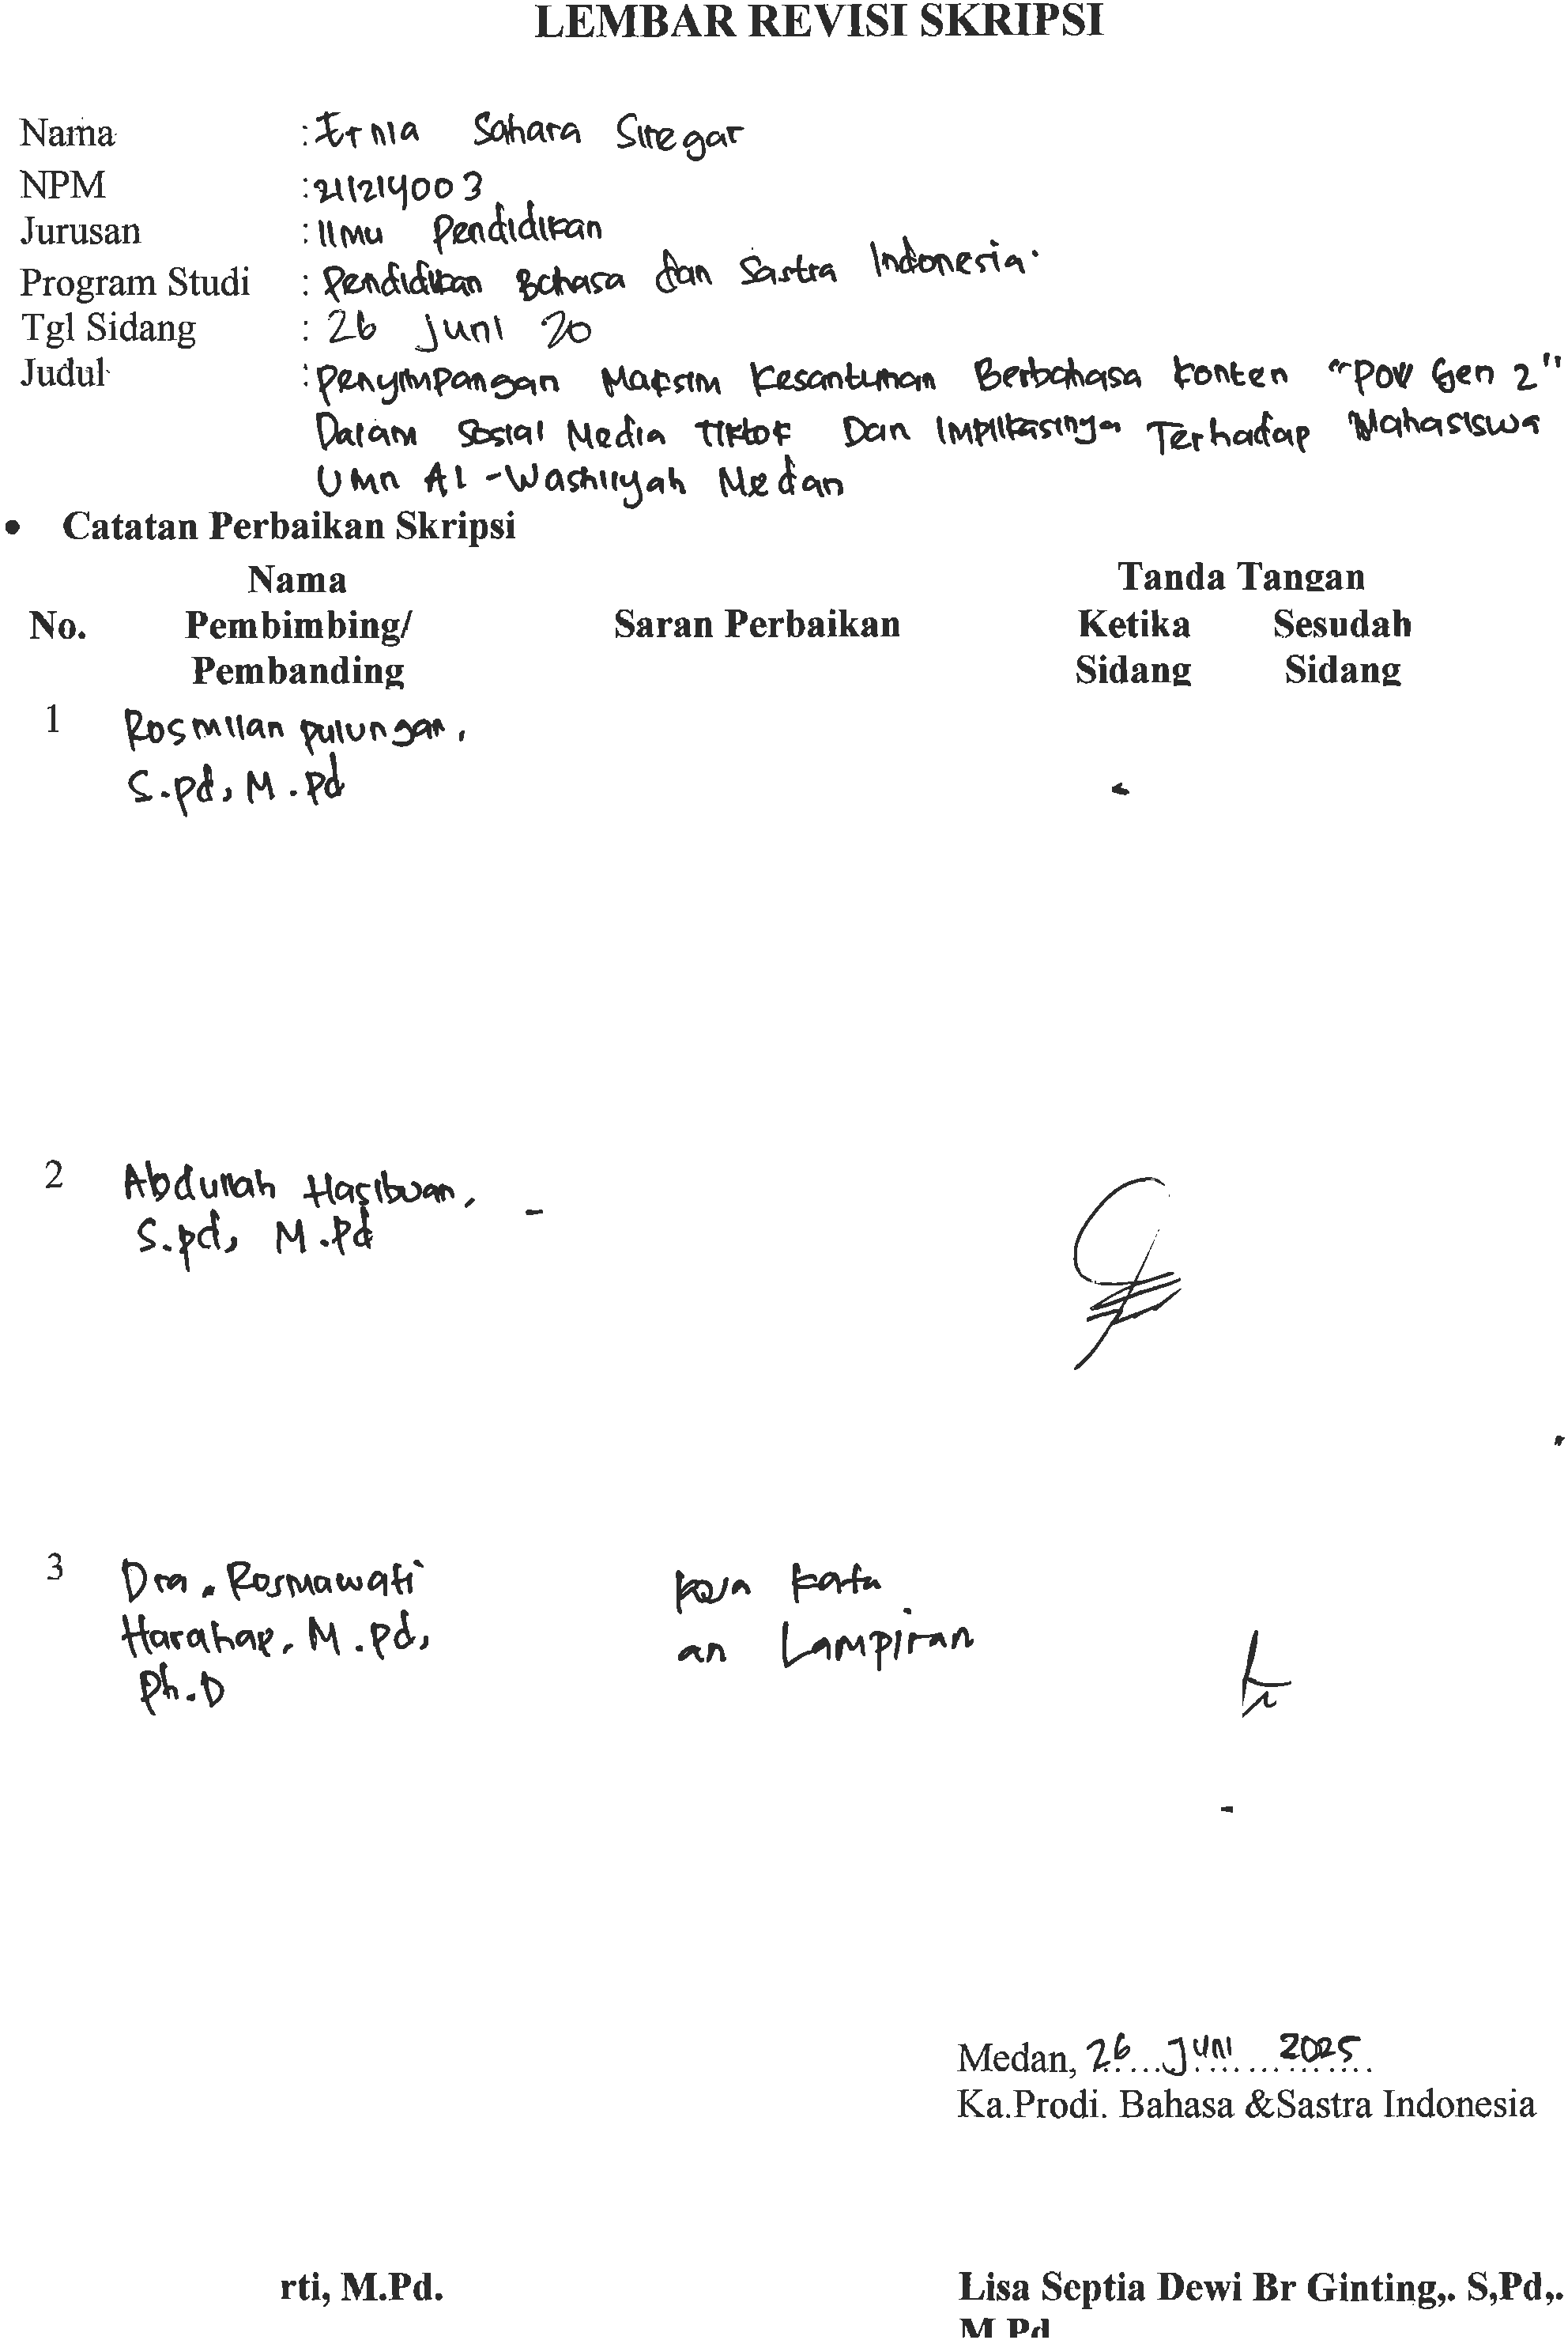 LEMBAR REVISI SKRIPSI
Nama : Ernia Sahara Siregar
NPM : 211214003
Jurusan : Ilmu Pendidikan
Program Studi : Pendidikan Bahasa dan Sastra Indonesia.
Tgl Sidang : 26 Juni 20
Judul : Penyimpangan Maksim Kesantunan Berbahasa Konten "POV Gen Z"
Dalam Sosial Media Tiktok Dan Implikasinya Terhadap Mahasiswa
UMN Al-Washliyah Medan
• Catatan Perbaikan Skripsi
Nama Tanda Tangan
No. Pembimbing/ Saran Perbaikan Ketika Sesudah
Pembanding Sidang Sidang
1 Rosmilan Pulungan,
S.Pd, M.Pd
2 Abdullah Hasibuan, -
S.Pd, M.Pd
3 Dra. Rosmawati Kata
Harahap, M.Pd, an Lampiran
Ph.D
Medan, 26 Juni 2025
Ka.Prodi. Bahasa &Sastra Indonesia
rti, M.Pd. Lisa Septia Dewi Br Ginting,. S,Pd,.
M.Pd